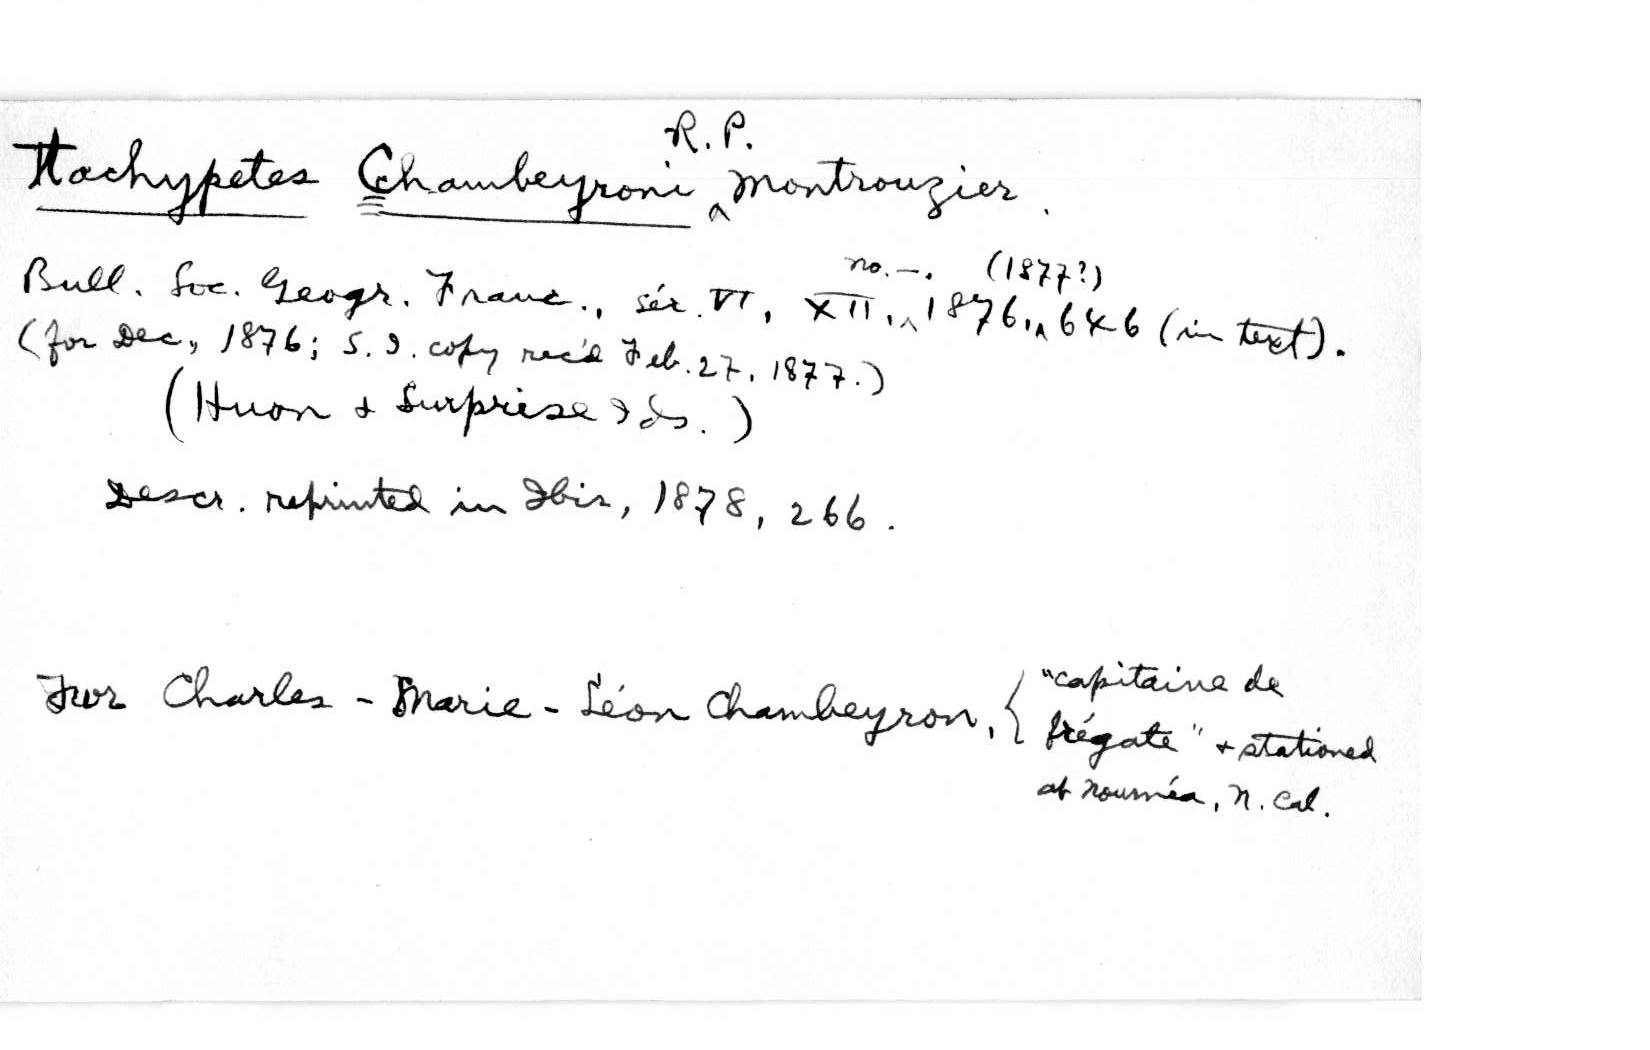 Tachypetes Chambeyroni ‸ R.P. Montrouzier.
Bull. Soc. Geogr. Franc., sér. VI, XII, ‸ no. –. 1876, ‸ (1877?) 646 (in text).
(for Dec, 1876; S.I. copy rec'd Feb. 27, 1877.)
(Huon & Surprise Ids.)
Descr. reprinted in Ibis, 1878, 266.
For Charles-Marie-Léon Chambeyron, { "capitaine de
frégate" & stationed
at Nouméa, N. Cal.